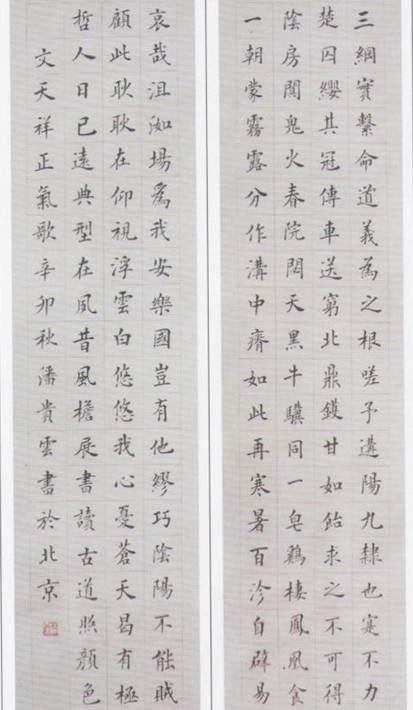 三綱實繫命道義為之根嗟予遘陽九隸也寔不力
楚囚纓其冠傳車送窮北鼎鑊甘如飴求之不可得
陰房闃鬼火春院閟天黑牛驥同一皂鷄棲鳳凰食
一朝蒙霧露分作溝中瘠如此再寒暑百沴自辟易
哀哉沮洳場爲我安樂國豈有他繆巧陰陽不能賊
顧此耿耿在仰視浮雲白悠悠我心憂蒼天曷有極
哲人日已遠典型在夙昔風檐展書讀古道照顏色
文天祥正氣歌辛卯秋潘貴雲書於北京